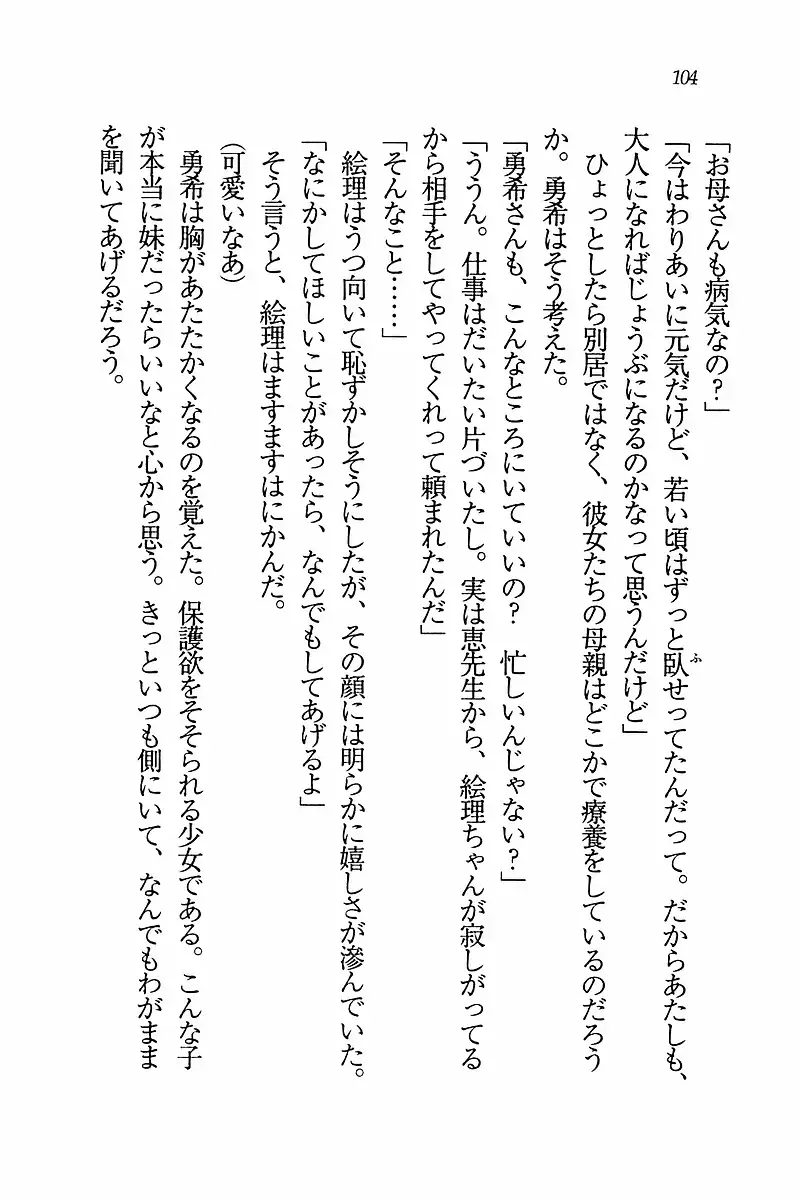 104
「お母さんも病気なの？」
「今はわりあいに元気だけど、若い頃はずっと臥せってたんだって。だからあたしも、
大人になればじょうぶになるのかなって思うんだけど」
　ひょっとしたら別居ではなく、彼女たちの母親はどこかで療養をしているのだろう
か。勇希はそう考えた。
「勇希さんも、こんなところにいていいの？　忙しいんじゃない？」
「ううん。仕事はだいたい片づいたし。実は恵先生から、絵理ちゃんが寂しがってる
から相手をしてやってくれって頼まれたんだ」
「そんなこと……」
　絵理はうつ向いて恥ずかしそうにしたが、その顔には明らかに嬉しさが滲んでいた。
「なにかしてほしいことがあったら、なんでもしてあげるよ」
　そう言うと、絵理はますますはにかんだ。
（可愛いなあ）
　勇希は胸があたたかくなるのを覚えた。保護欲をそそられる少女である。こんな子
が本当に妹だったらいいなと心から思う。きっといつも側にいて、なんでもわがまま
を聞いてあげるだろう。
ふ